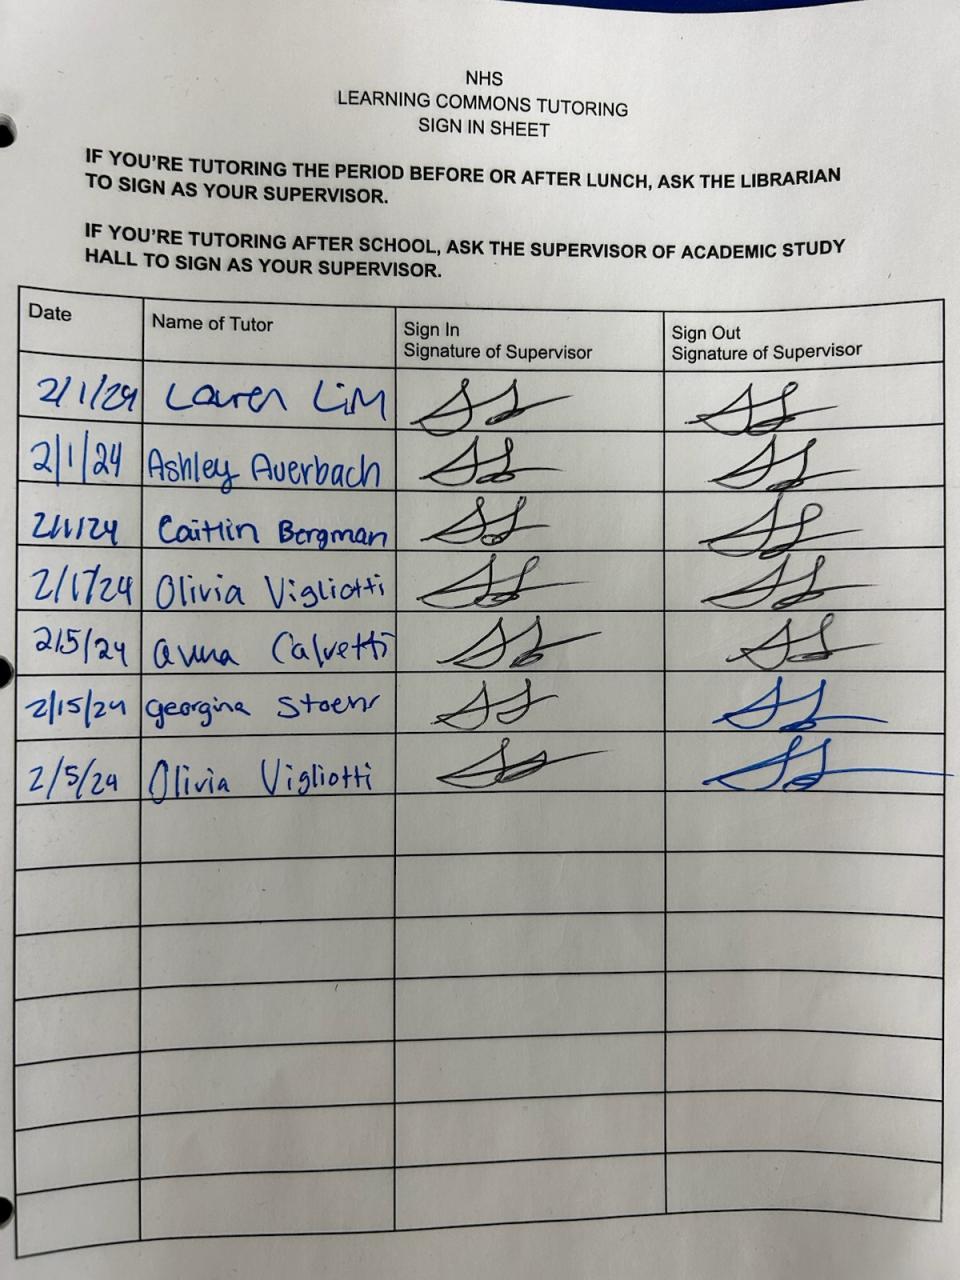 NHS
LEARNING COMMONS TUTORING
SIGN IN SHEET
IF YOU'RE TUTORING THE PERIOD BEFORE OR AFTER LUNCH, ASK THE LIBRARIAN
TO SIGN AS YOUR SUPERVISOR.
IF YOU'RE TUTORING AFTER SCHOOL, ASK THE SUPERVISOR OF ACADEMIC STUDY
HALL TO SIGN AS YOUR SUPERVISOR.
Date Name of Tutor Sign In Sign Out
Signature of Supervisor Signature of Supervisor
2/1/24 Lauren Lim
2/1/24 Ashley Auerbach
2/1/24 Caitlin Bergman
2/1/24 Olivia Vigliotti
2/5/24 Anna Calvetti
2/15/24 georgina Stoehr
2/5/24 Olivia Vigliotti